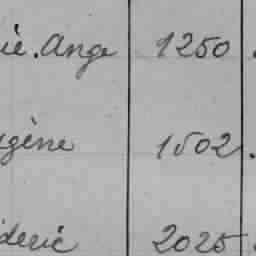 ie. Ange 1250
gène 1502.
deric 2025.